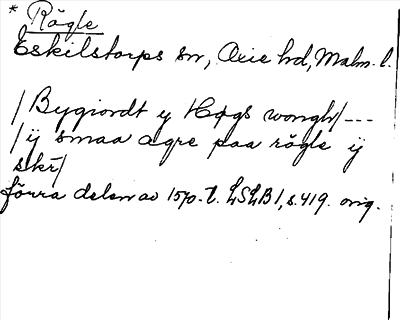 * Rögle
Eskilstorps sn, Oxie hd, Malm. l.
/Bygiordt y Høgs wongh/---
/ij smaa agre paa rögle ij
skr/
förra delen av 1570-t. LSLB 1, s. 419. orig.